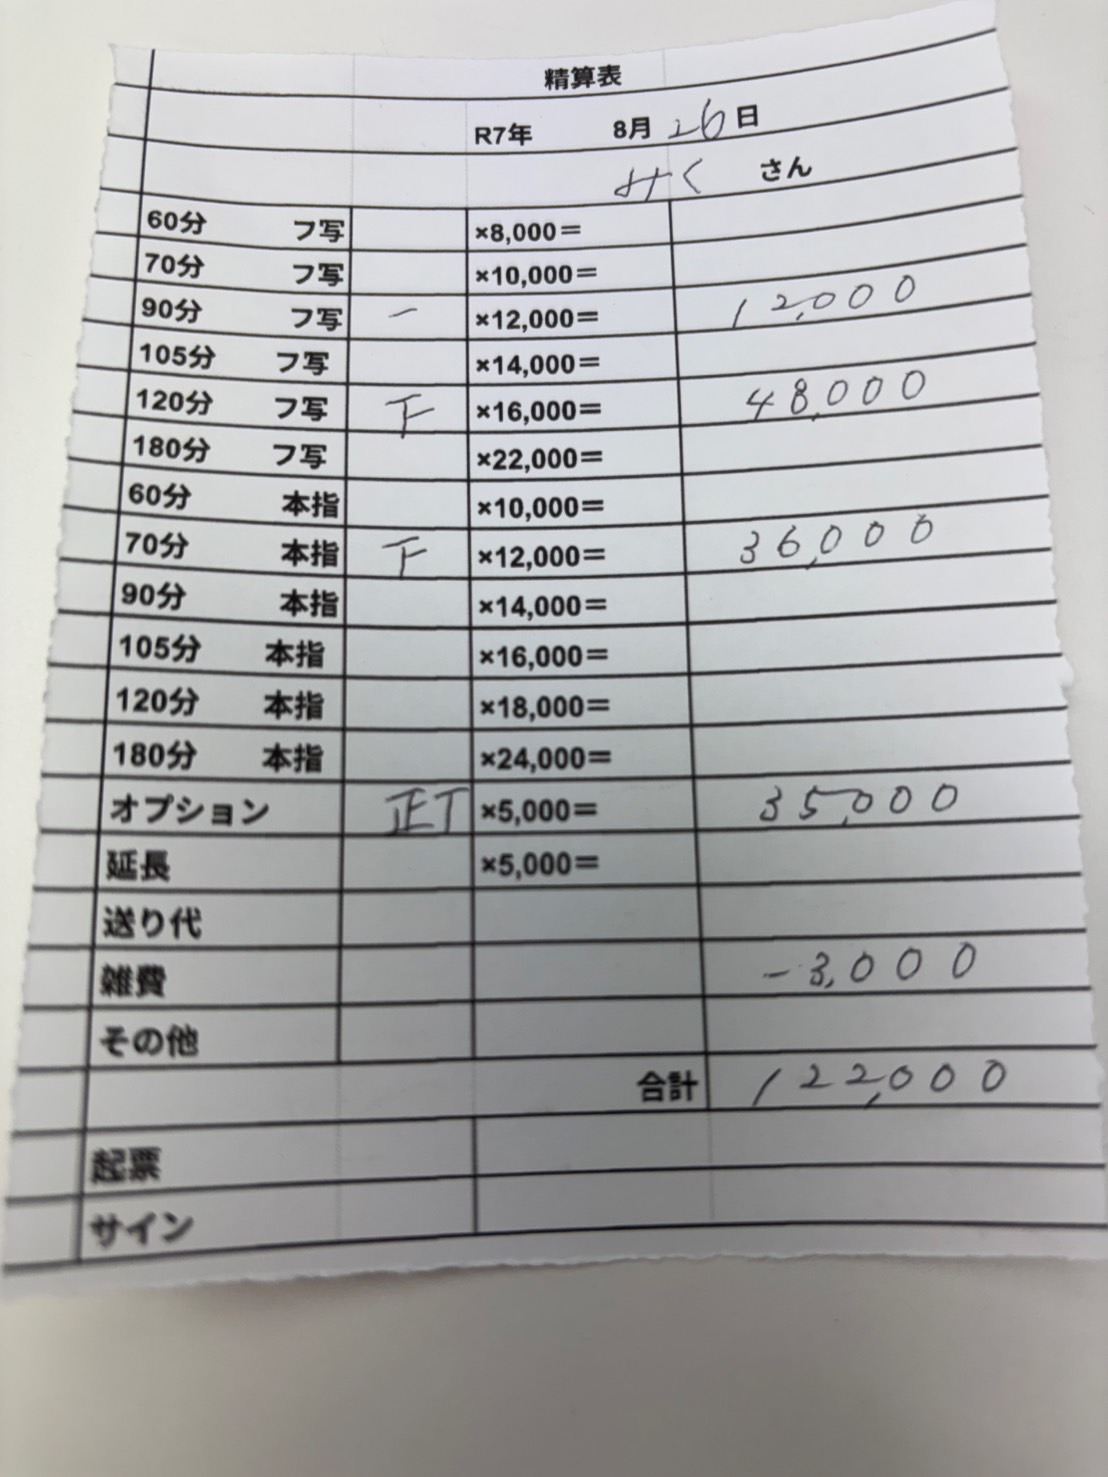 精算表
R7年 8月 26日
みく さん
60分 フ写 ×8,000=
70分 フ写 ×10,000=
90分 フ写 一 ×12,000= 12,000
105分 フ写 ×14,000=
120分 フ写 下 ×16,000= 48,000
180分 フ写 ×22,000=
60分 本指 ×10,000=
70分 本指 下 ×12,000= 36,000
90分 本指 ×14,000=
105分 本指 ×16,000=
120分 本指 ×18,000=
180分 本指 ×24,000=
オプション 正T ×5,000= 35,000
延長 ×5,000=
送り代
雑費 -3,000
その他
合計 122,000
起票
サイン